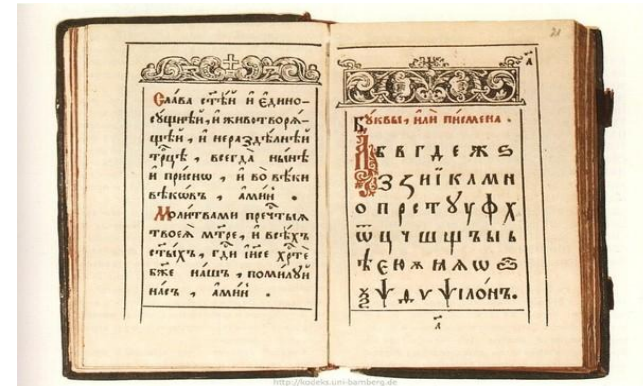 Сла́ва ст҃ѣ́й и҆ є҆дино-
сꙋ́щнѣй, и҆ животворѧ́-
щѣй, и҆ нераздѣ́лнѣй
трⷪ҇цѣ, всегда̀ нн҃ѣ
и҆ при́снѡ, и҆ во вѣ́ки
вѣкѡ́въ, а҆ми́нь.
Моли́твами пречⷭ҇тыѧ
твоеѧ̀ мт҃ре, и҆ всѣ́хъ
ст҃ы́хъ, гдⷭ҇и і҆и҃се хрⷭ҇тѐ
бж҃е на́шъ, поми́лꙋй
на́съ, а҆ми́нь.
21
а҃
Бꙋ́квы, и҆лѝ пи́смена.
А Б В Г Д Е Ж Ѕ
З Ꙁ И Ї К Л М Н
О П Р С Т Ꙋ У Ф Х
Ѿ Ц Ч Ш Щ Ъ Ы Ь
Ѣ Є Ю Ѫ И Ѧ Ѡ
Ѯ Ѱ Ѵ Ѱїло́нъ.
http://kodeks.uni-bamberg.de